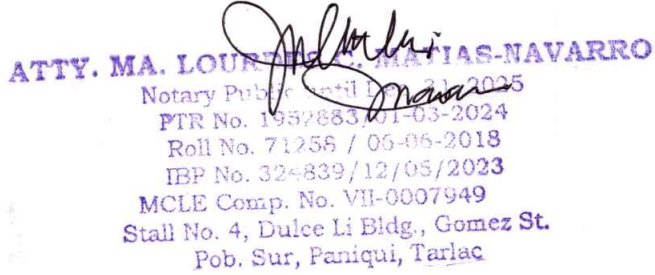 ATTY. MA. LOURDES C. MATIAS-NAVARRO
Notary Public until Dec. 31, 2025
PTR No. 1952883/01-03-2024
Roll No. 71258 / 06-06-2018
IBP No. 324839/12/05/2023
MCLE Comp. No. VII-0007949
Stall No. 4, Dulce Li Bldg., Gomez St.
Pob. Sur, Paniqui, Tarlac